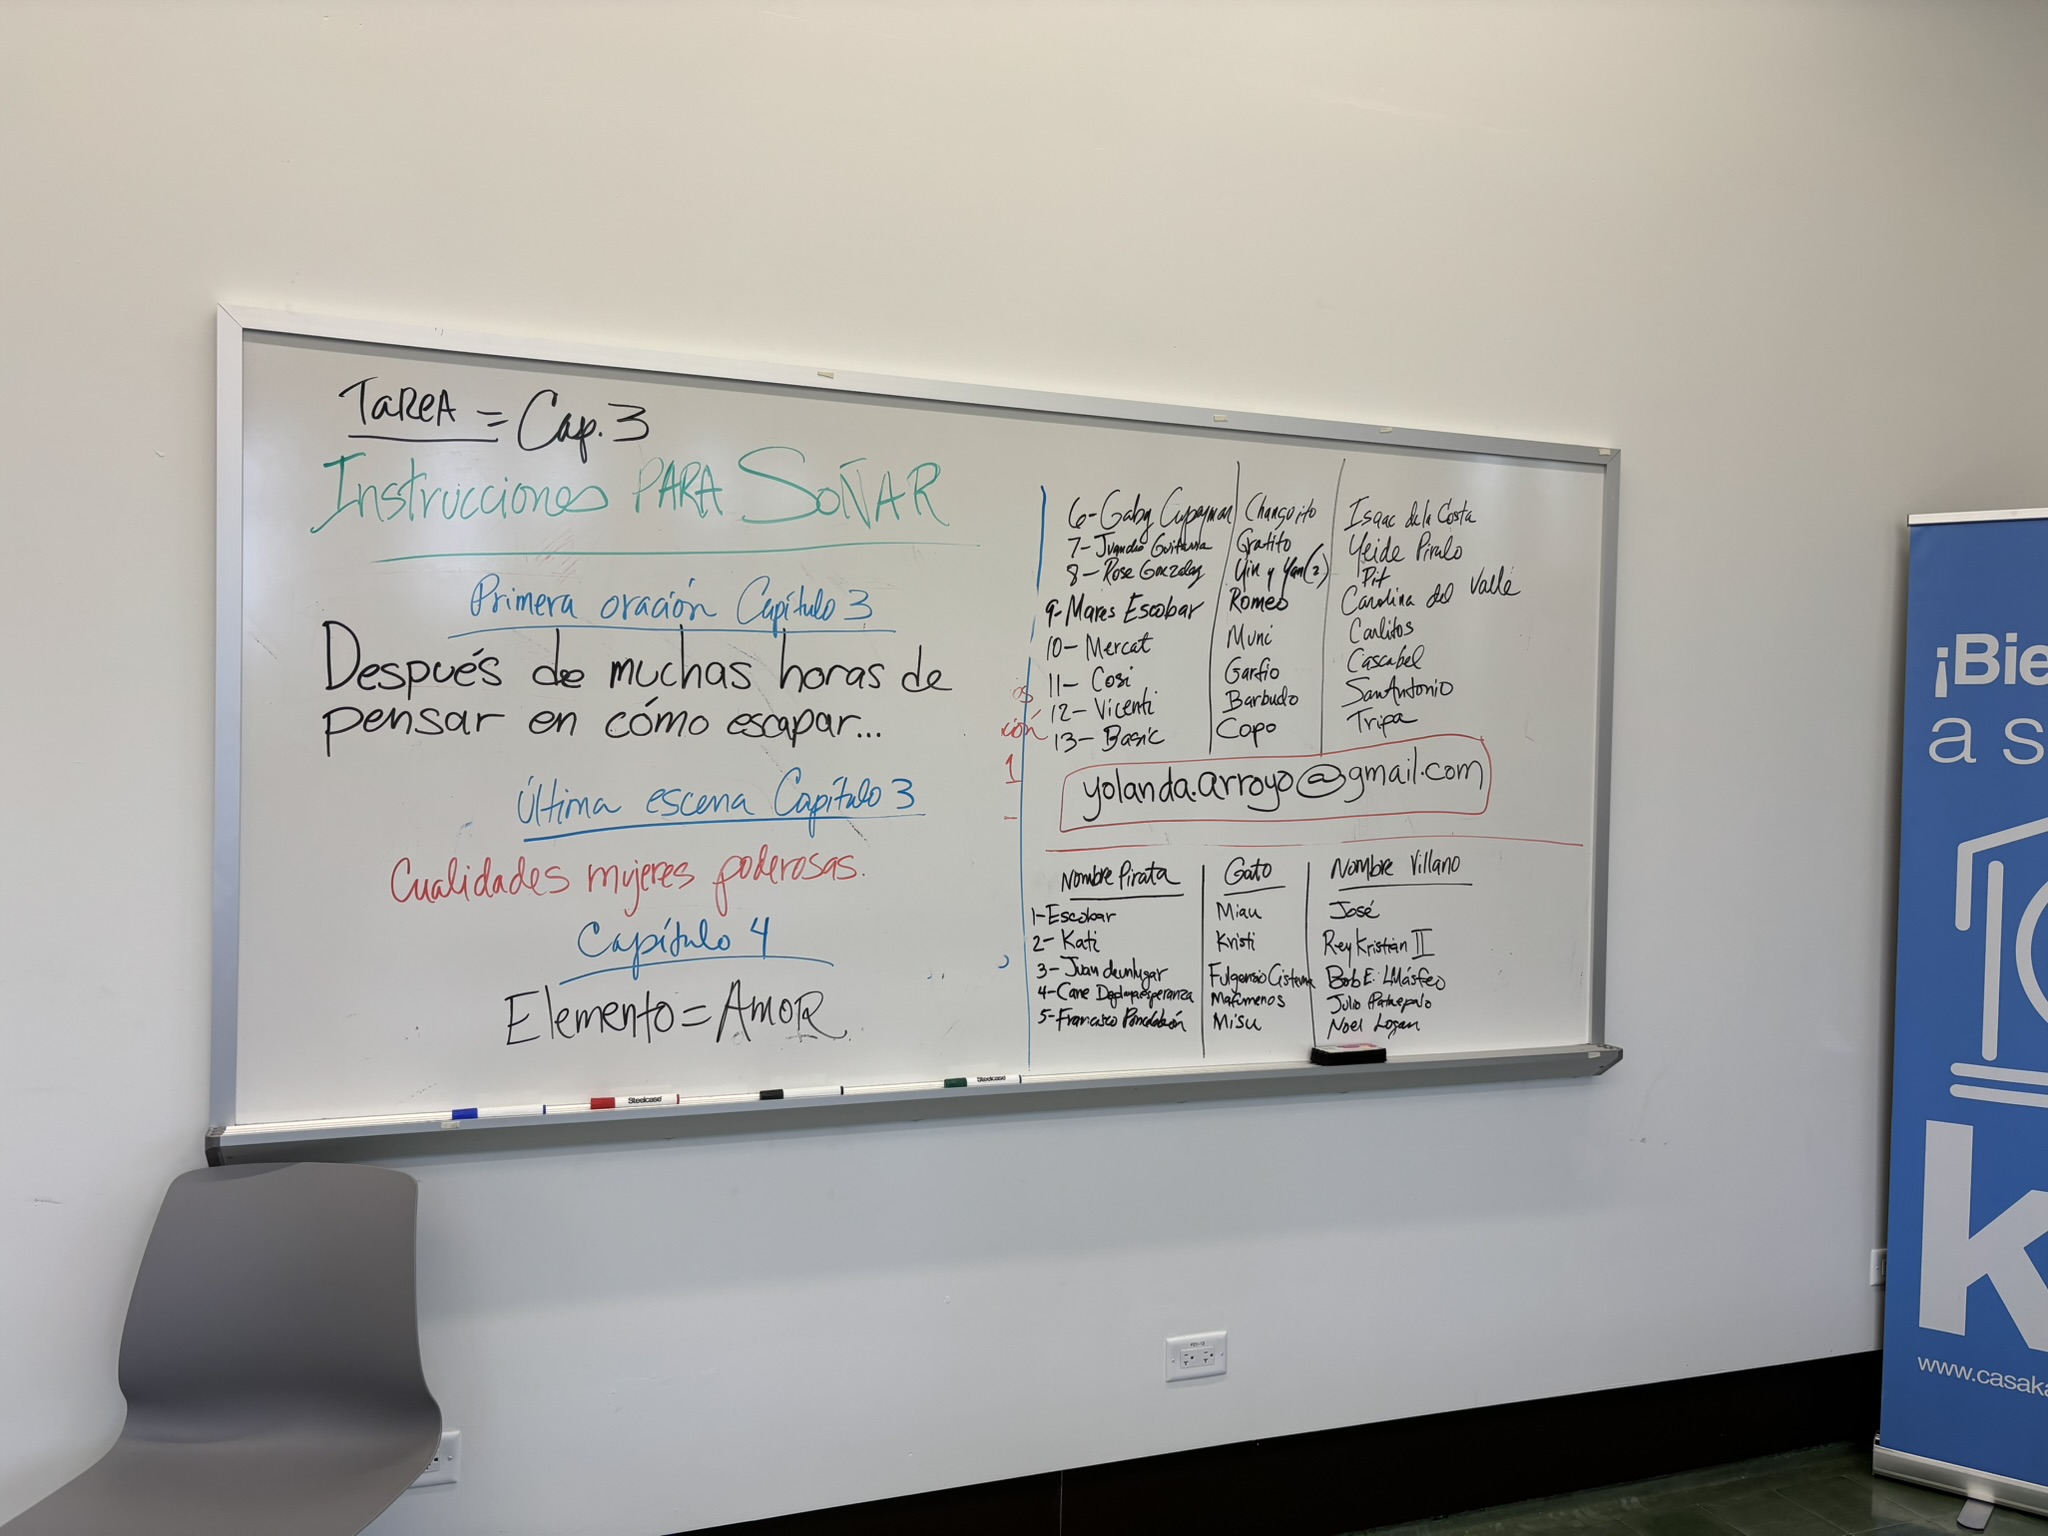 TAREA = Cap. 3
Instrucciones PARA SOÑAR
Primera oración Capítulo 3
Después de muchas horas de
pensar en cómo escapar...
Última escena Capítulo 3
Cualidades mujeres poderosas.
Capítulo 4
Elemento = AMOR
6- Gaby Cupeyman Changorito Isaac de la Costa
7- Gratito Yeide Piralo
8- Rose Gonzalez Yin y Yan (2) Pit
9- Mares Escobar Romeo Carolina del Valle
10- Mercat Muni Carlitos
11- Cosi Garfio Cascabel
12- Vicenti Barbudo San Antonio
13- Basic Copo Tripa
os
ción
1
yolanda.arroyo@gmail.com
Nombre Pirata Gato Nombre Villano
1- Escobar Miau José
2- Kati Kristi Rey Kristian II
3- Juan deunlugar Fulgensio Cisterna Bob E.
4- Cane Mafimenos Julio
5- Francisco Misu Noel Logan
Steelcase
Steelcase
¡Bie
a s
k
www.casaka